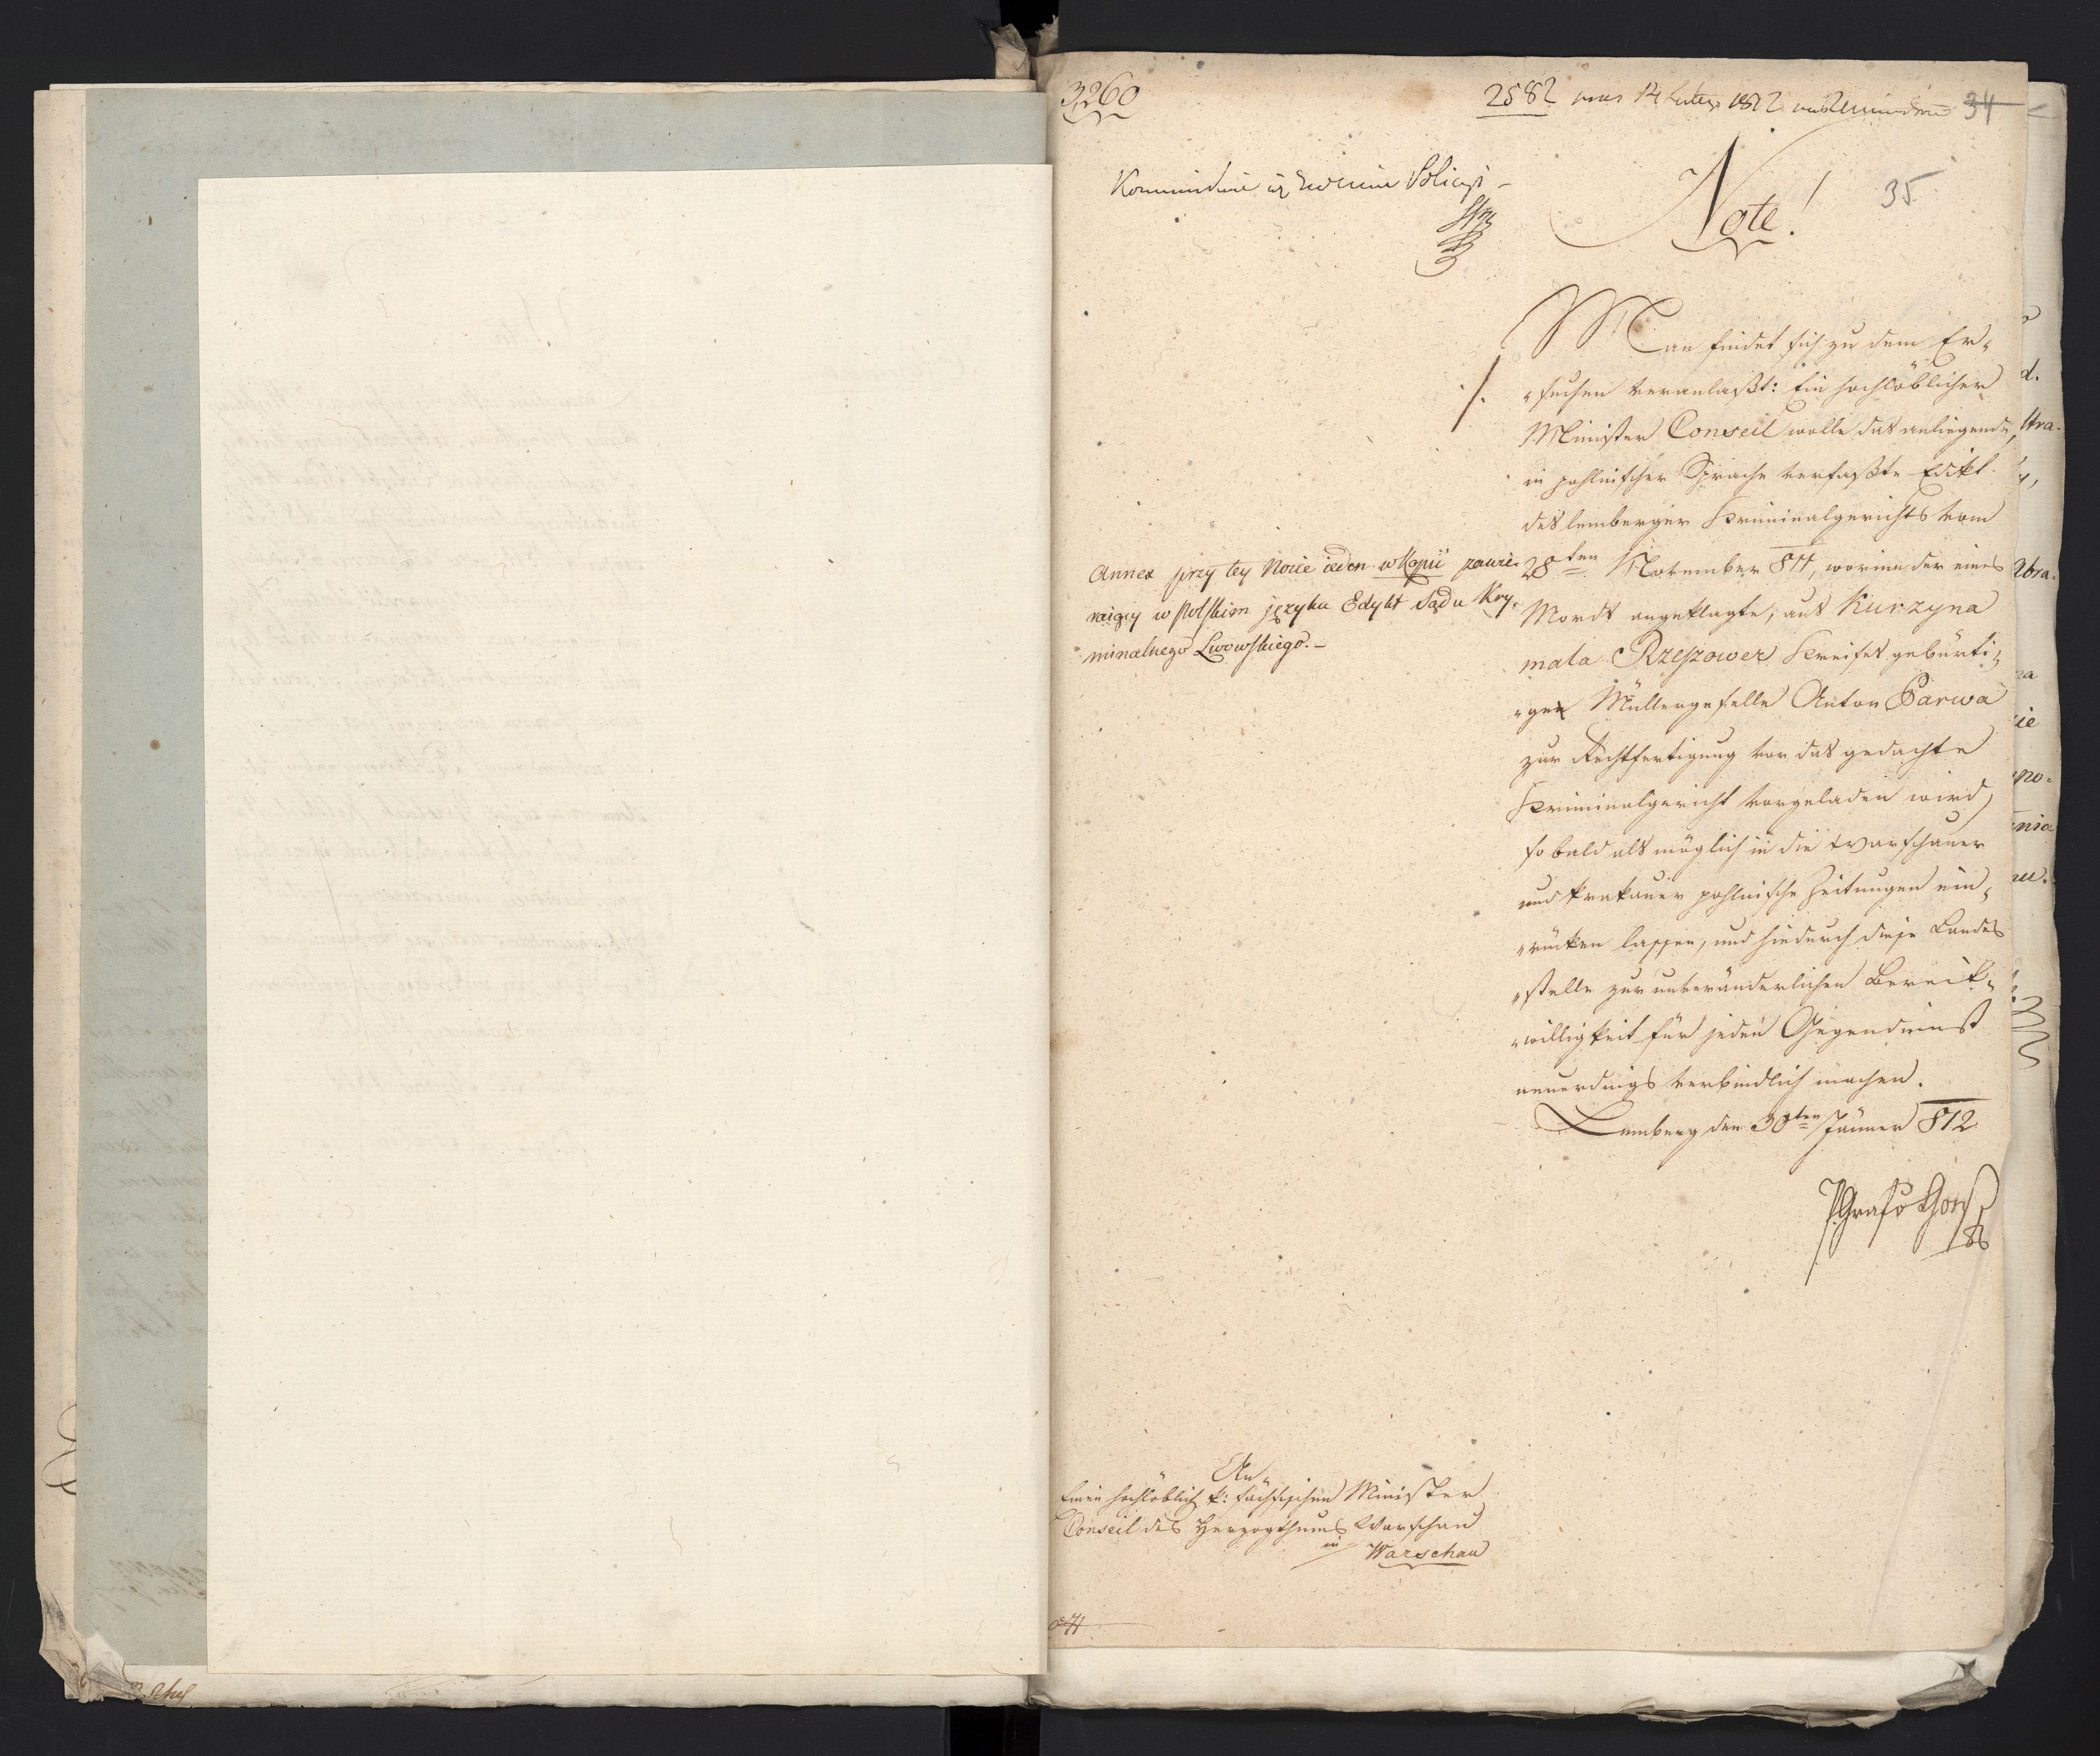 3260
2582 14 1812 34
35
Note!
Man findet sich zu dem Er-
suchen veranlaßt: Ein hochlöblicher
Minister Conseil wolle das anliegende,
in pohlnischer Sprache verfaßte Edikt
des lemberger Kriminalgerichts vom
28ten November 811, worinn der eines
Mords angeklagte, aus Kurzyna
mala Rzeszower Kreises gebürti-
gen Müllergeselle Anton Barwa
zur Rechtfertigung vor das gedachte
Kriminalgericht vorgeladen wird,
so bald als möglich in die warschauer
und krakauer pohlnische Zeitungen ein-
rücken lassen, und hiedurch diese Landes
stelle zur unveränderlichen Bereit-
willigkeit für jeden Gegendienst
neuerdings verbindlich machen.
Lemberg den 30ten Jänner 812
Annex przy tey Nocie ieden w Kopii zawie-
raiący w Polskim języku Edykt Sądu Kry-
minalnego Lwowskiego.-
An
Einen hochlöblich k: sächsischen Minister
Conseil des Herzogthums Warschau
in Warschau